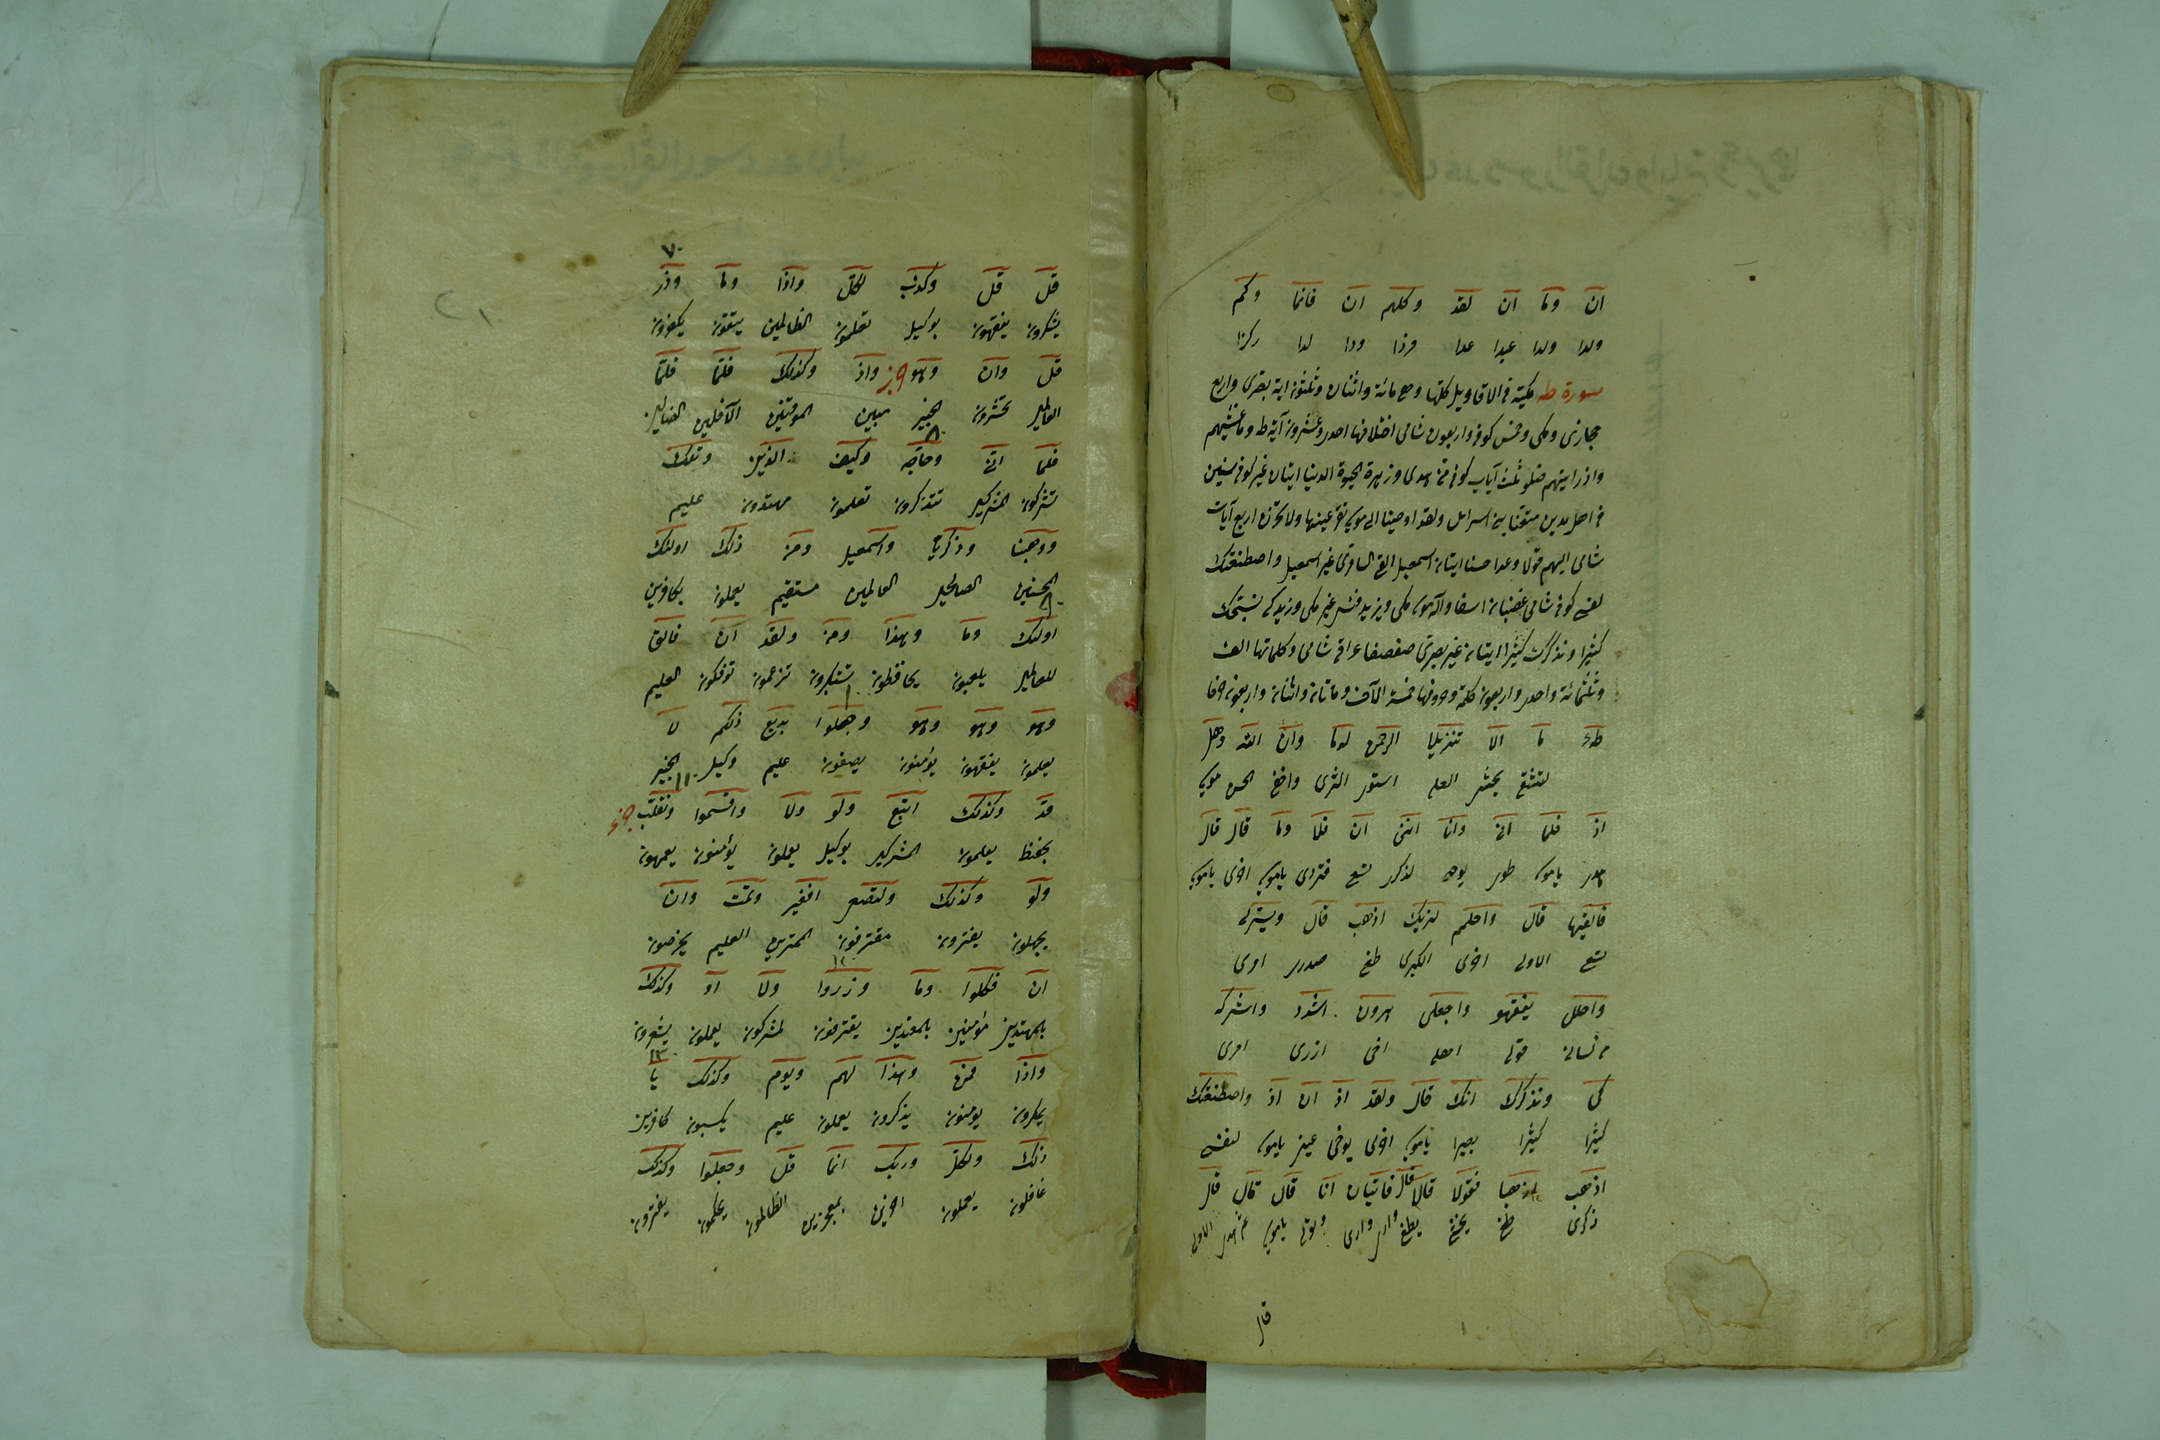 ان وما ان لقد وكلهم ان فانما وكم
ولدا ولدا عبدا عدا فردا ودا لدا ركزا
سورة طه مكية في الاقاويل كلها وهي مائة واثنان وثلثون اية بصرى واربع
حجازى ومكى وخمس كوفي واربعون شامى اختلافها احدى وعشرون آية طه وما غشيهم
واذ رايتهم ضلوا ثلث آيات كوفي منى هدى وزهرة الحيوة الدنيا ايتان غير كوفي سنين
في اهل مدين معنا بني اسرايل ولقد اوحينا الى موسى تقر عينها ولا تحزن اربع آيات
شامى اليهم قولا وعدا حسنا ايتان اسمعيل القى السامرى غير اسمعيل واصطنعتك
لنفسى كوفي شامى غضبان اسفا واله موسى مكى ويزيد فنسى غير مكى ويزيد كى نسبحك
كثيرا ونذكرك كثيرا ايتان غير بصرى صفصفا عراقى شامى وكلماتها الف
وثلثمائة واحدى واربعون كلمة وحروفها خمسة الآف ومائتان واثنان واربعون حرفا
طه ما الا تنزيلا الرحمن له ما وان الله وهل
لتشقى يخشى العلى استوى الثرى واخفى الحسنى موسى
اذ فلما انى وانا اننى ان فلا وما قال قال
هدى ياموسى طوى يوحى لذكرى تسعى فتردى ياموسى اخرى ياموسى
فالقيها قال واضمم لنريك اذهب قال ويسرلى
تسعى الاولى اخرى الكبرى طغى صدرى امرى
واحلل يفقهوا واجعلى هرون اشدد واشركه
من لسانى قولى اهلى اخى ازرى امرى
كى ونذكرك انك قال ولقد اذ ان اذ واصطنعتك
كثيرا كثيرا بصيرا ياموسى اخرى يوحى عينى ياموسى لنفسى
اذهب اذهبا فقولا قالا قال فاتيان انا قال قال قال
ذكرى طغى يخشى يطغى وارى وتولى ياموسى هدى الاولى
قال
٧٠
قل قل وكذب لكل واذا وما وذر
يشكرون يفقهون بوكيل تعلمون الظالمين يتقون يكفرون
قل وان وهو واذ وكذلك فلما فلما
العالمين تحشرون الخبير مبين الموقنين الآفلين الضالين
فلما انى وحاجه وكيف الذين وتلك
تشركون المشركين تتذكرون تعلمون مهتدون عليم
ووهبنا وذكريا واسمعيل ومن ذلك اولئك
المحسنين الصالحين العالمين مستقيم يعملون بكافرين
اولئك وما وهذا ومن ولقد ان فالق
للعالمين يلعبون يحافظون تستكبرون تزعمون توفكون العليم
وهو وهو وهو وجعلوا بديع ذلكم لا
يعلمون يفقهون يؤمنون يصفون عليم وكيل الخبير
قد وكذلك اتبع ولو ولا واقسموا ونقلب
بحفيظ يعلمون المشركين بوكيل يعملون يؤمنون يعمهون
ولو وكذلك ولتصغى افغير وتمت وان
يجهلون يفترون مقترفون الممترين العليم يخرصون
ان فكلوا وما وذروا ولا او وكذلك
بالمهتدين مؤمنين بالمعتدين يقترفون لمشركون يعملون يشعرون
واذا فمن وهذا لهم ويوم وكذلك يا
يمكرون يومنون يذكرون يعملون عليم يكسبون كافرين
ذلك ولكل وربك انما قل وجعلوا وكذلك
غافلون يعملون اخرين بمعجزين الظالمون يحكمون يفترون